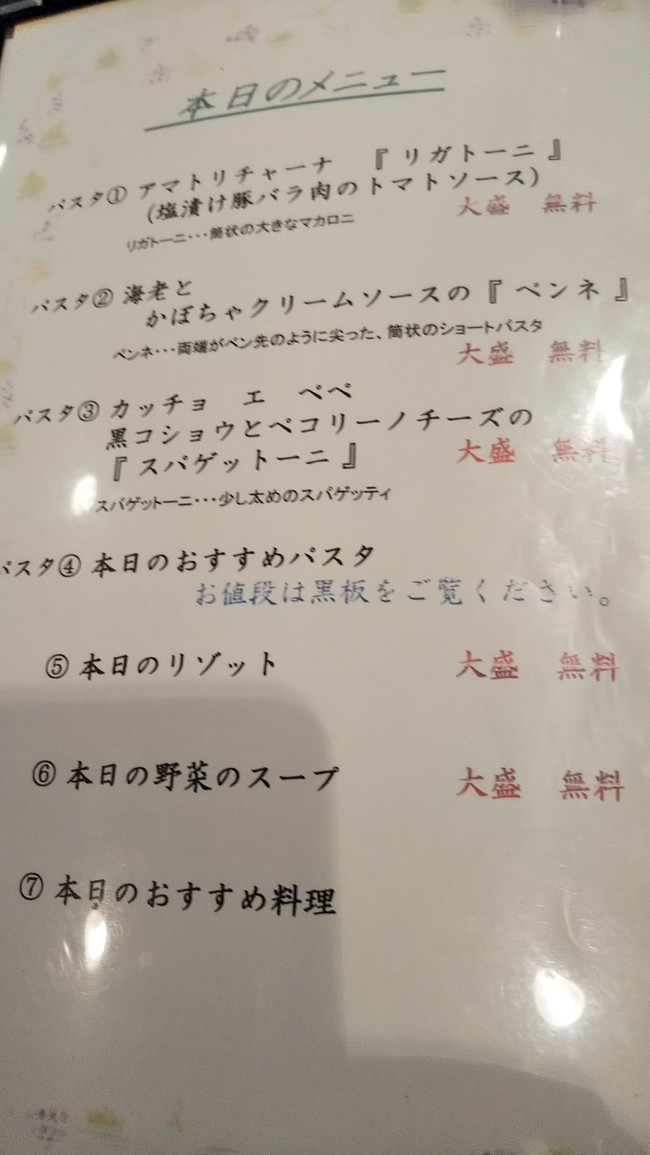 本日のメニュー
パスタ① アマトリチャーナ 『 リガトーニ 』
(塩漬け豚バラ肉のトマトソース)
大盛 無料
リガトーニ・・・筒状の大きなマカロニ
パスタ② 海老と
かぼちゃクリームソースの『 ペンネ 』
ペンネ・・・両端がペン先のように尖った、筒状のショートパスタ
大盛 無料
パスタ③ カッチョ エ ペペ
黒コショウとペコリーノチーズの
大盛 無料
『 スパゲットーニ 』
スパゲットーニ・・・少し太めのスパゲッティ
パスタ④ 本日のおすすめパスタ
お値段は黒板をご覧ください。
⑤ 本日のリゾット 大盛 無料
⑥ 本日の野菜のスープ 大盛 無料
⑦ 本日のおすすめ料理